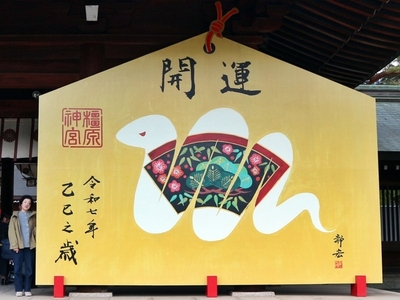 開運
橿原
神宮
令和七年
乙巳之歳
静岳